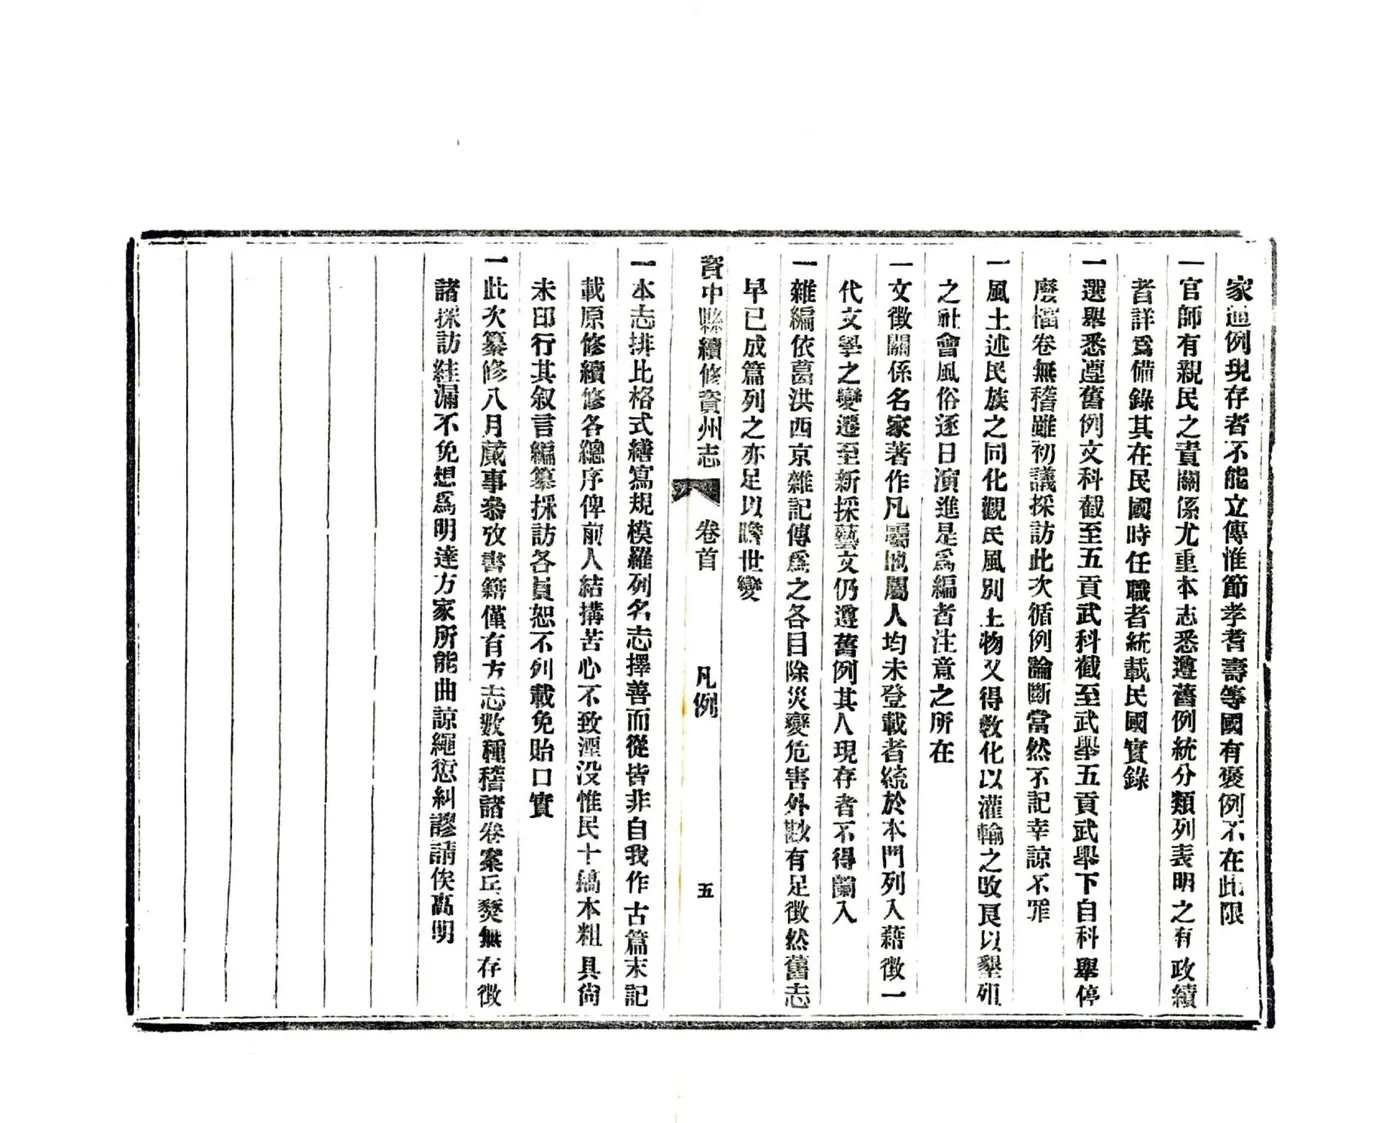 家通例現存者不能立傳惟節孝耆壽等國有褒例不在此限
一官師有親民之責關係尤重本志悉遵舊例統分類列表明之有政績
者詳爲備錄其在民國時任職者統載民國實錄
一選舉悉遵舊例文科截至五貢武科截至武舉五貢武舉下自科舉停
廢檔卷無稽雖初議採訪此次循例論斷當然不記幸諒不罪
一風土述民族之同化觀民風別土物又得敎化以灌輸之改良以墾殖
之社會風俗逐日演進是爲編者注意之所在
一文徵關係名家著作凡屬地屬人均未登載者統於本門列入藉徵一
代文學之變遷至新採藝文仍遵舊例其人現存者不得闌入
一雜編依葛洪西京雜記傳爲之各目除災變危害外數有足徵然舊志
早已成篇列之亦足以瞻世變
資中縣續修資州志 卷首 凡例 五
一本志排比格式繕寫規模羅列名志擇善而從皆非自我作古篇末記
載原修續修各總序俾前人結搆苦心不致湮没惟民十稿本粗具尙
未印行其叙言編纂採訪各員恕不列載免貽口實
一此次纂修八月蕆事參攷書籍僅有方志數種稽諸卷案兵燹無存徵
諸採訪絓漏不免想爲明達方家所能曲諒繩愆糾謬請俟高明